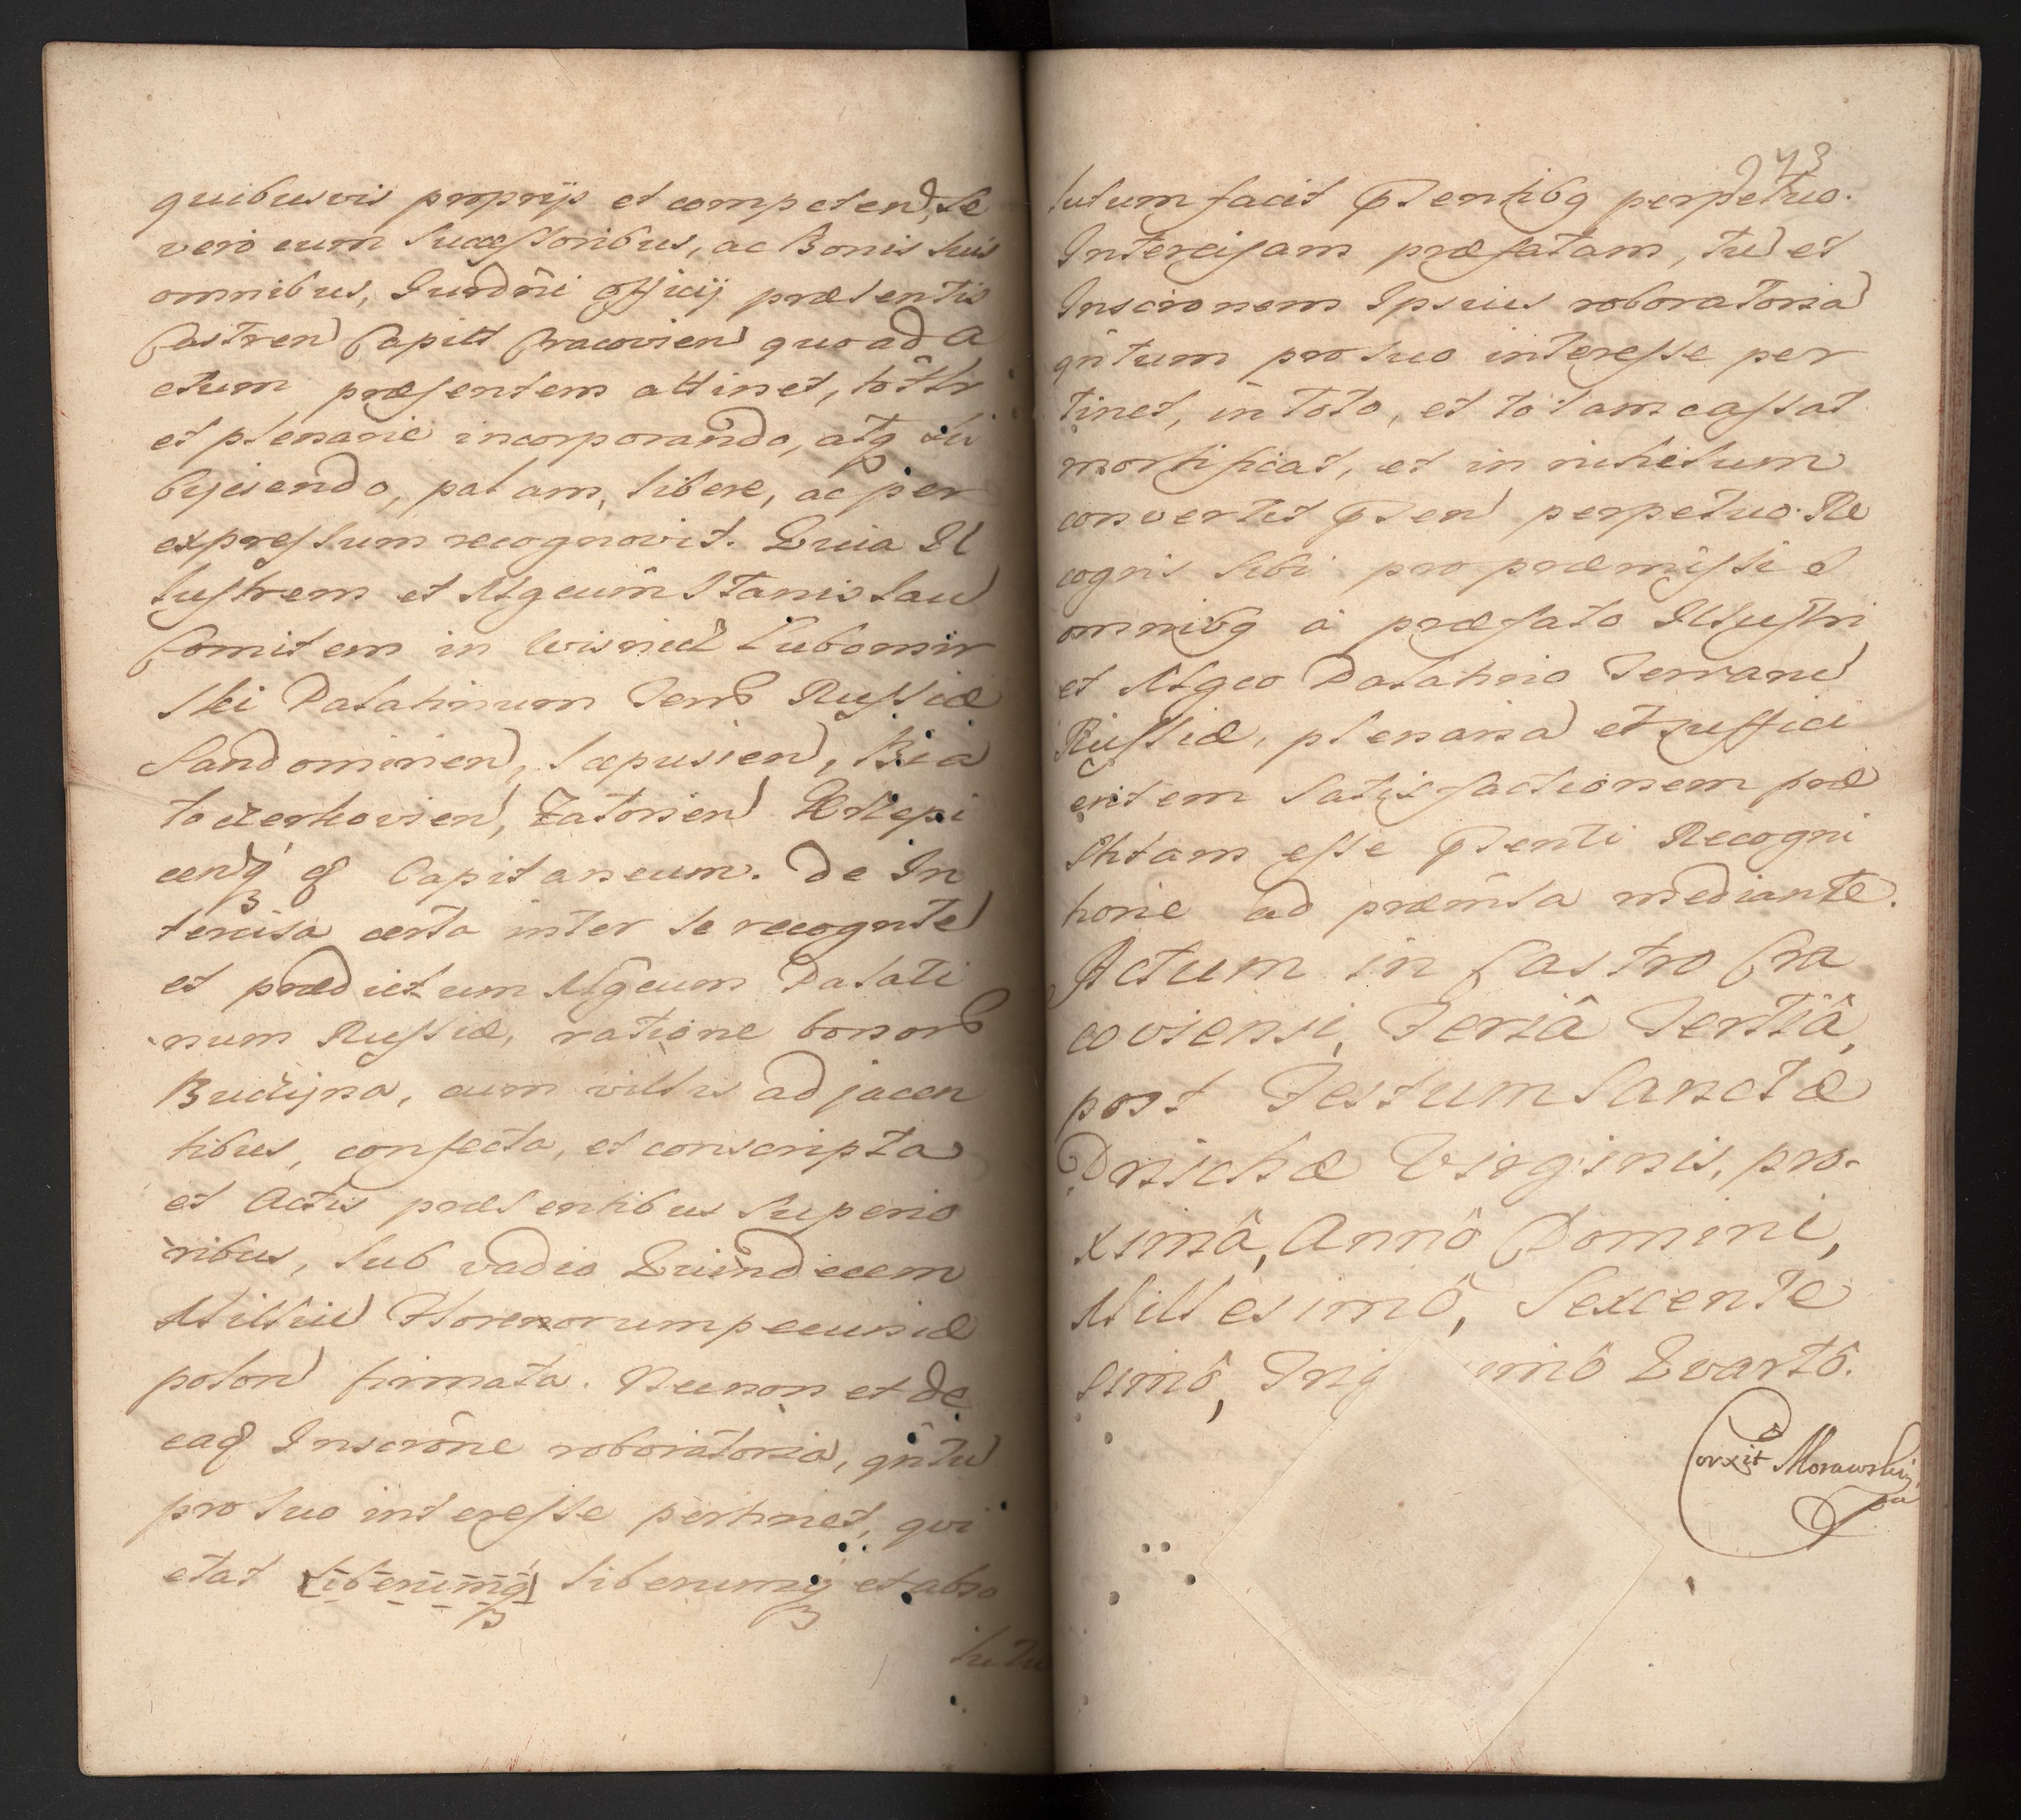 quibusvis proprijs et competend, se
vero cum successoribus, ac Bonis suis
omnibus, Jurdñi Officij præsentis
Castren Capitt Cracovien quoad a
ctum præsentem attinet, tôttr
et plenarie incorporando, atq su
bijciendo, palam, libere, ac per
expressum recognovit. Quia Il
lustrem et Mgcum Stanislau
Comitem in Wisnicz Lubomir
ski Palatinum Terr Russiæ
Sandomirien, Scepusien, Bia
tocerkovien, Zatorien
cenq Capitaneum. De In
tercisa certa inter se recognte
et prædictum Mgcum Palati
num Russiæ, ratione bonor
Budzyna, cum villis adjacen
tibus, confecta, et conscripta
et Actis præsentibus superio
ribus, sub vadio Quindecem
Milliu Florenorum pecuniæ
polon firmata. Necnon et de
eaq Inscrône roboratoria, qñtu
pro suo interesse pertinet, qvi
etat liberumq liberumq et abso
lutu
243
lutum facit pntibq perpetuo.
Intercisam præfatam, tu et
Inscronem Ipsius roboratoria
qñtum pro suo interesse per
tinet, in toto, et totam cassat
mortificat, et in nihilum
convertit pnsen perpetuo. Re
cogns sibi pro præmissis
omnibq à præfato Illustri
et Mgco Palatino Terraru
Russiæ, plenaria et suffici
entem satisfactionem præ
stitam esse pnsenti Recogni
tione ad præmîsa mediante.
Actum in Castro Cra
coviensi, Feriâ Tertiâ,
post Festum Sanctæ
Priscæ Virginis, pro-
ximâ, Annô Domini,
Millesimô, Sexcente
simô, Trig imô Qvartô.
Corxit Morawski